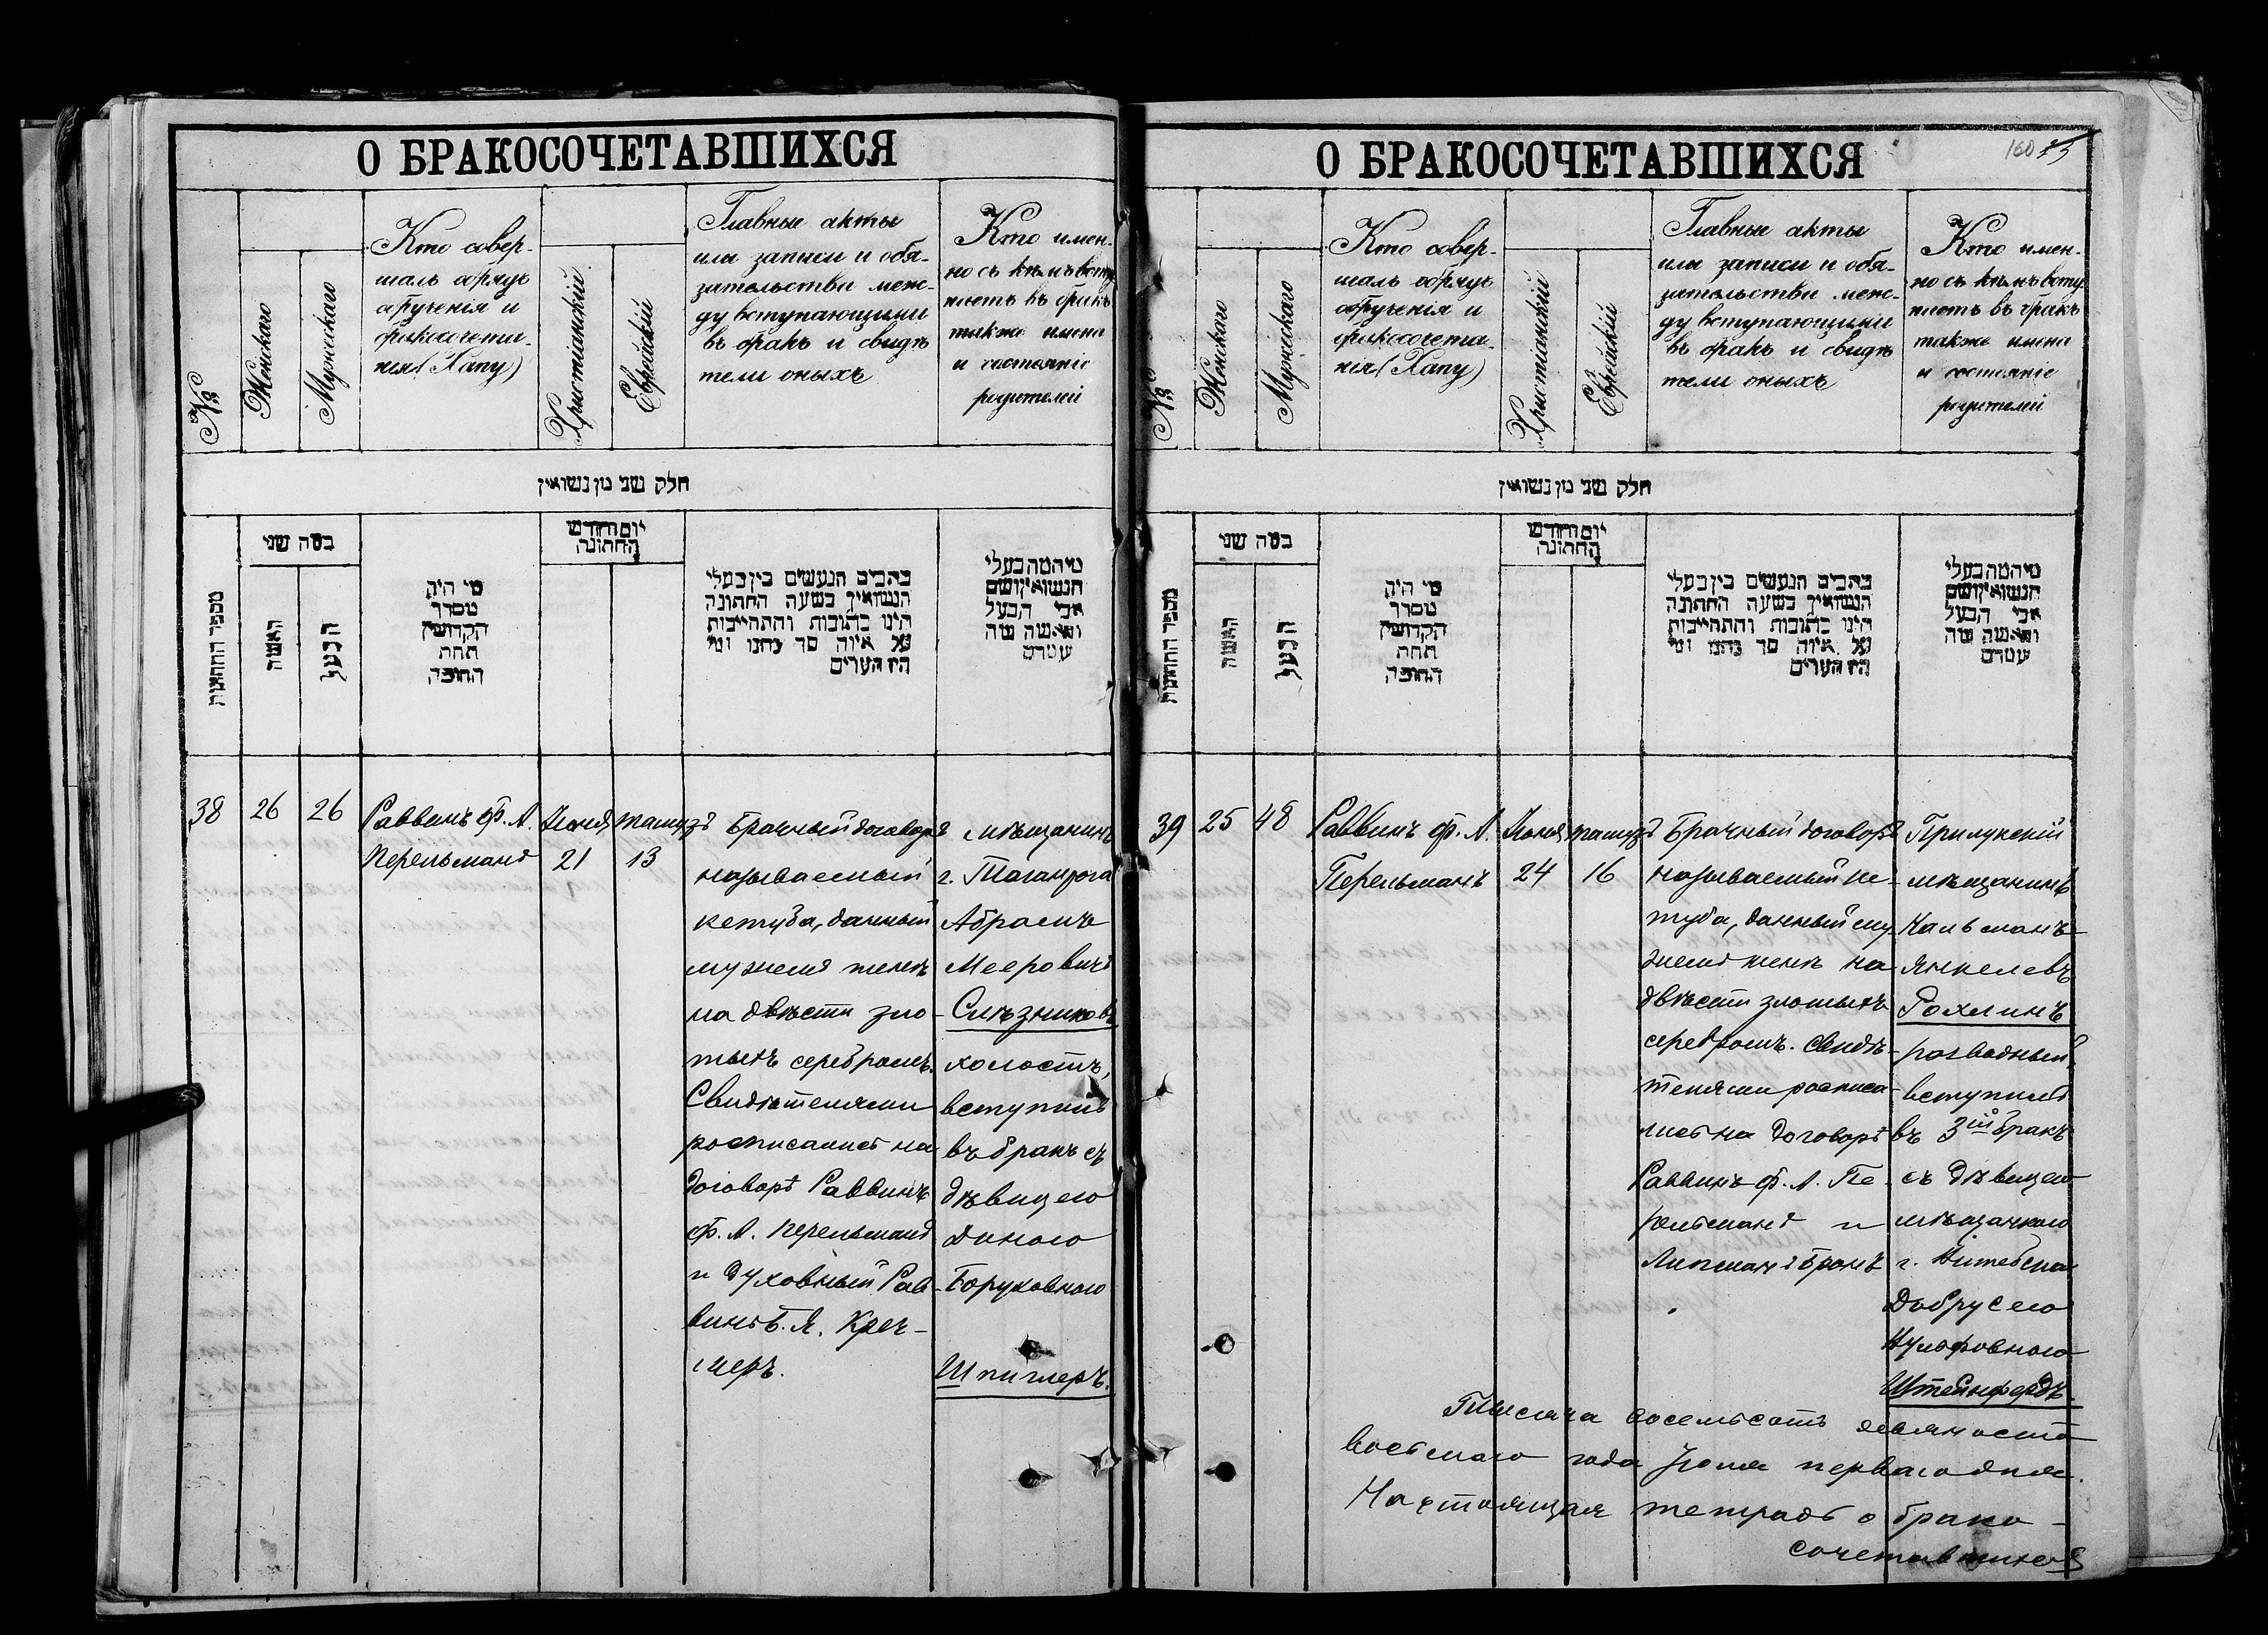 О БРАКОСОЧЕТАВШИХСЯ
№
Женскаго
Мужескаго
Кто совер-
шалъ обрядъ
обрученія и
бракосочета-
нія (Хапу)
Христіанскій
Еврейскій
Главные акты
или записи и обя-
зательства меж-
ду вступающими
въ бракъ и свидѣ
тели оныхъ
Кто имен-
но съ кѣмъ всту
паетъ въ бракъ
также имена
и состояніе
родителей
חלק שני מן נשואין
מספר החתונות
במה שני
האשה
הבעל
מי היה
מסדר
הקדושין
תחת
החופה
יום וחודש
החתונה
כתבים הנעשים בין בעלי
הנשואין בשעה החתונה
היינו כתובות והתחייבות
על איזה סך נתנו ומי
היו העדים
מי המה בעלי
הנשואין ושם
אבי הבעל
והאשה
38
26
26
Раввинъ Ф. Л.
Перельманъ
Іюня
21
тамузъ
13
Брачный договоръ
называемый
кетуба, данный
мужемъ женѣ
на двѣсти зло-
тыхъ серебромъ.
Свидѣтелями
росписались на
договорѣ Раввинъ
Ф. Л. Перельманъ
и духовный Рав-
винъ Б. Я. Креч-
меръ.
мѣщанинъ
г. Таганрога
Абрамъ
Мееровичъ
Слѣзниковъ
холостъ,
вступилъ
въ бракъ съ
дѣвицею
Диною
Боруховною
Шпиглеръ.
О БРАКОСОЧЕТАВШИХСЯ
160
№
Женскаго
Мужескаго
Кто совер-
шалъ обрядъ
обрученія и
бракосочета-
нія (Хапу)
Христіанскій
Еврейскій
Главные акты
или записи и обя-
зательства меж-
ду вступающими
въ бракъ и свидѣ
тели оныхъ
Кто имен-
но съ кѣмъ всту
паетъ въ бракъ
также имена
и состояніе
родителей
חלק שני מן נשואין
מספר החתונות
במה שני
האשה
הבעל
מי היה
מסדר
הקדושין
תחת
החופה
יום וחודש
החתונה
כתבים הנעשים בין בעלי
הנשואין בשעה החתונה
היינו כתובות והתחייבות
על איזה סך נתנו ומי
היו העדים
מי המה בעלי
הנשואין ושם
אבי הבעל
והאשה
39
25
48
Раввинъ Ф. Л.
Перельманъ
Іюня
24
тамузъ
16
Брачный договоръ
называемый ке-
туба, данный му-
жемъ женѣ на
двѣсти злотыхъ
серебромъ. Свидѣ-
телями росписа-
лись на договорѣ
Раввинъ Ф. Л. Пе-
рельманъ и
Липманъ Бронъ
Прилукскій
мѣщанинъ
Кальманъ
Янкелевъ
Рохлинъ
разводный
вступилъ
въ 3ій бракъ
съ дѣвицею
мѣщанкою
г. Витебска
Добрусею
Вульфовною
Штейнфердъ
Тысяча восемьсотъ девяносто
восьмаго года Іюля перваго дня.
Настоящая тетрадь о брако-
сочетавшихся